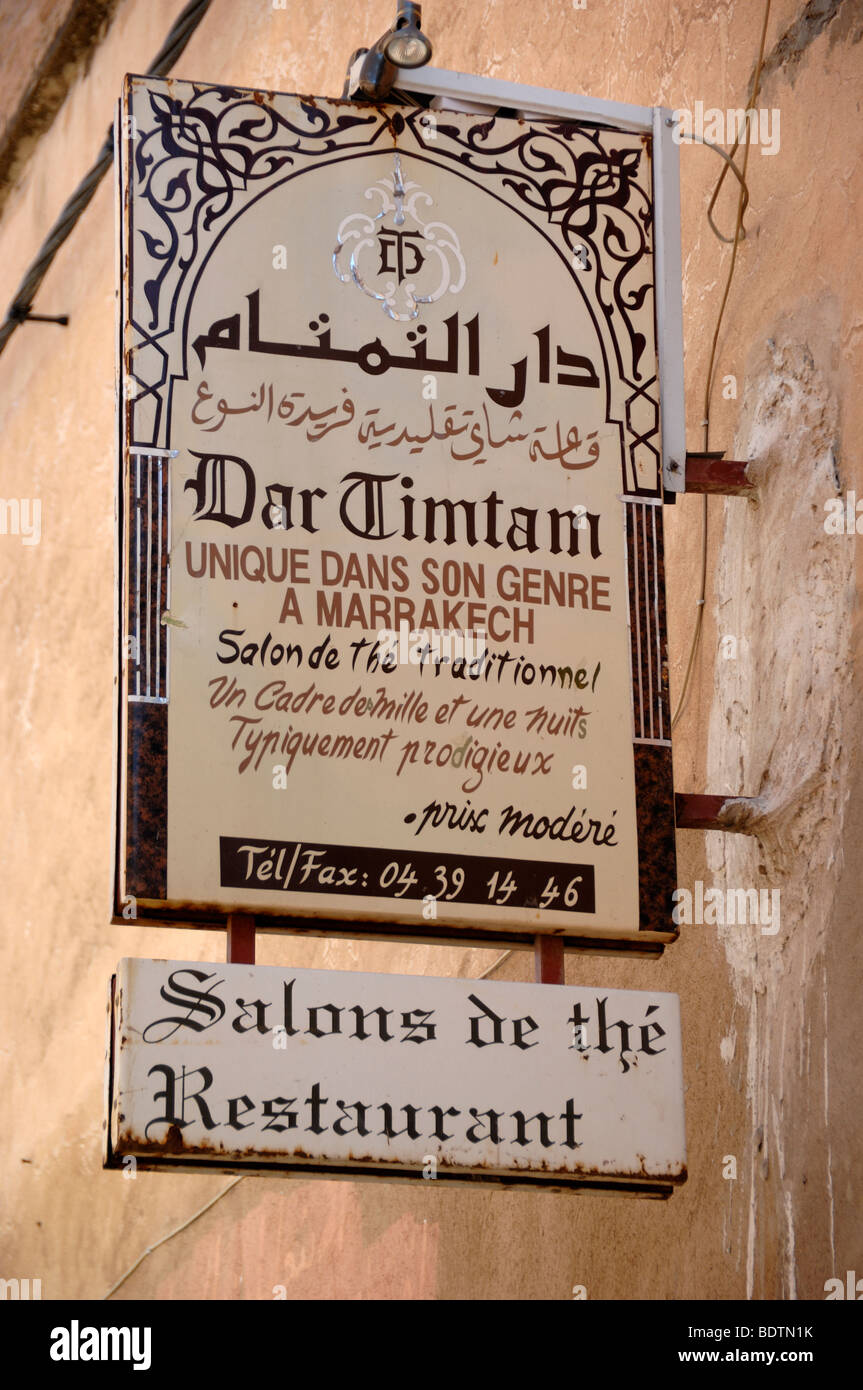 DT
دار التمتام
قاعة شاي تقليدية فريدة النوع
Dar Timtam
UNIQUE DANS SON GENRE
A MARRAKECH
Salon de thé traditionnel
Un Cadre de Mille et une nuits
Typiquement prodigieux
•prix modéré
Tél/Fax: 04 39 14 46
Salons de thé
Restaurant
alamy
Image ID: BDTN1K
www.alamy.com